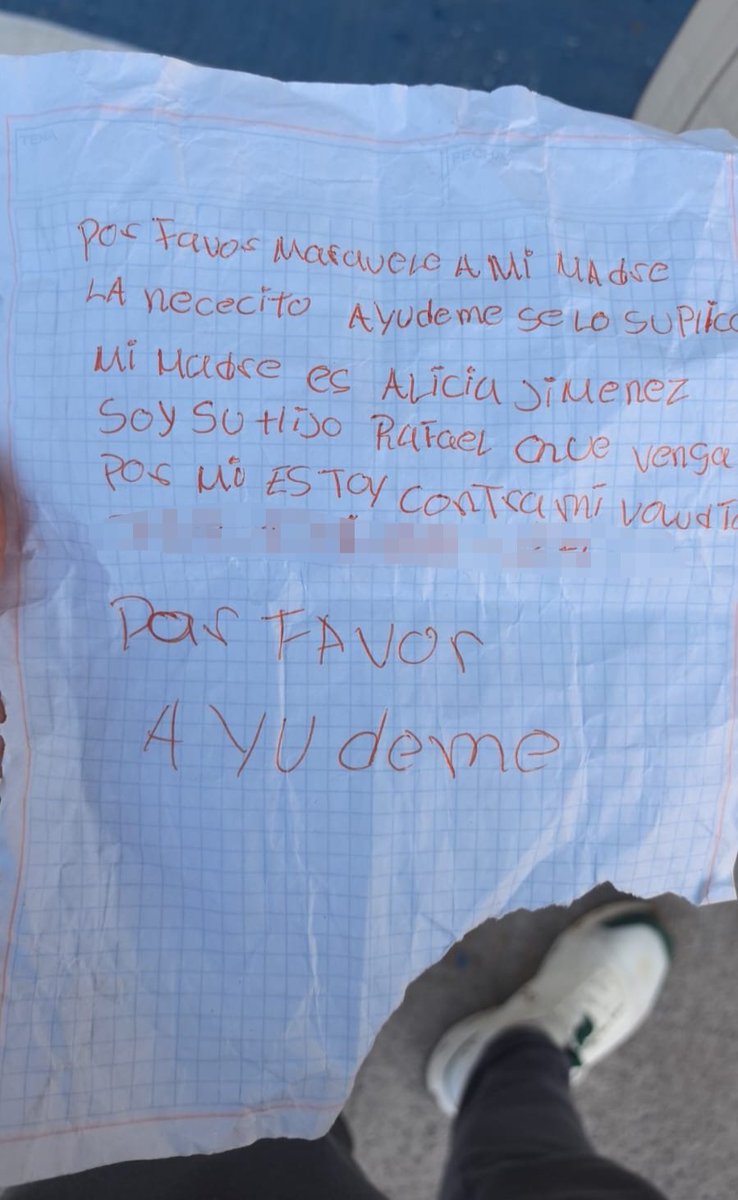 TEMA
FECHA
Por Favor Marquele A Mi Madre
LA nececito Ayudeme se Lo suplico
Mi Madre es ALicia Jimenez
Soy Su Hijo Rafael que venga
Por Mi ESTOY contra mi
Por FAVOR
AYUdeme